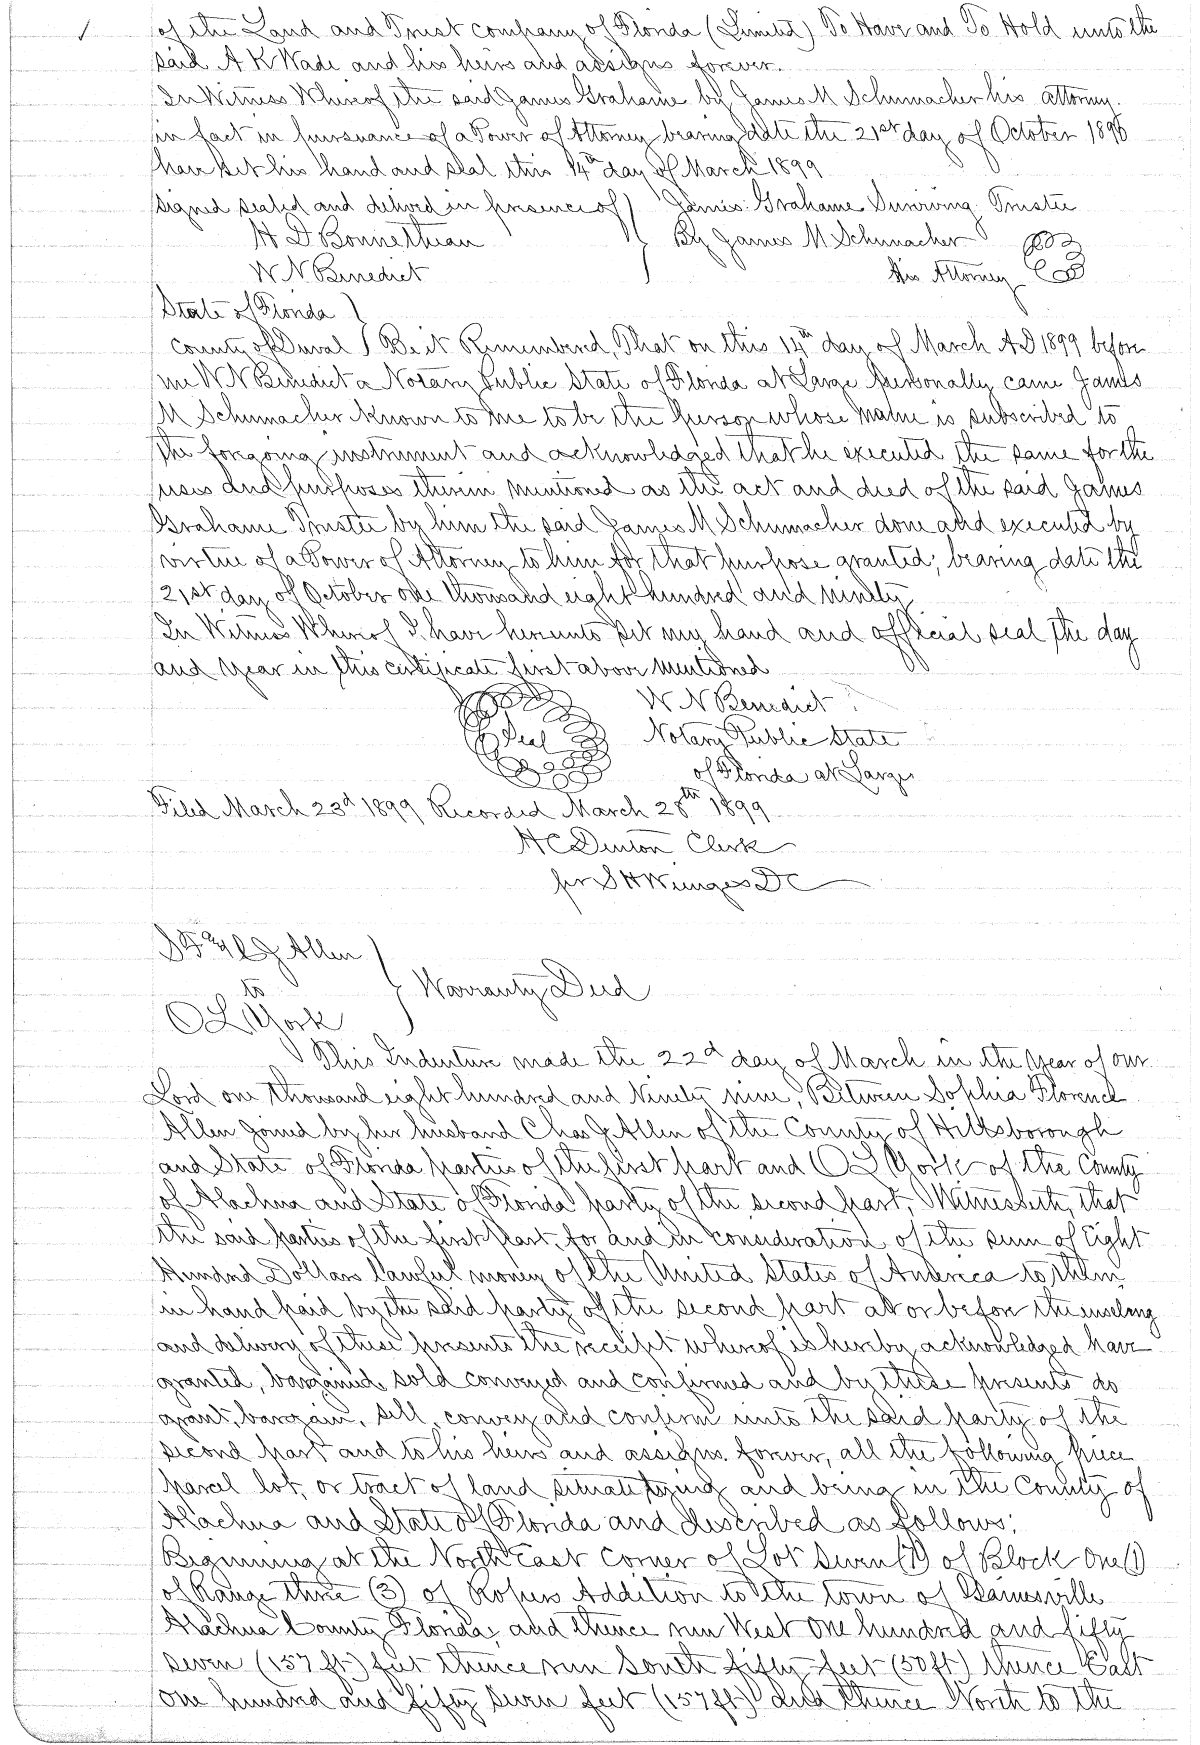 of the Land and Trust company of Florida (Limited) To Have and To Hold unto the
said A K Wade and his heirs and assigns forever.
In Witness Whereof the said James Grahame by James M Schumacher his attorney.
in fact in pursuance of a Power of Attorney bearing date the 21st day of October 1890
have set his hand and seal this 14th day of March 1899
Signed sealed and delived in presence of } James Grahame Surviving Trustee
H D Bonnetheau } By James M Schumacher
W N Benedict his Attorney
State of Florida }
County of Duval } Be it Remembered, That on this 14th day of March A D 1899 before
me W N Benedict a Notary Public State of Florida at Large personally came James
M Schumacher known to me to be the person whose name is subscribed to
the forgoing instrument and acknowledged that he executed the same for the
uses and purposes therein mentioned as the act and deed of the said James
Grahame Trustee by him the said James M Schumacher done and executed by
virtue of a Power of Attorney to him for that purpose granted, bearing date the
21st day of October one thousand eight hundred and ninety
In Witness Whereof I have hereunto set my hand and official seal the day
and year in this certificate first above mentioned
W N Benedict
Seal Notary Public State
of Florida at Large
Filed March 23d 1899 Recorded March 28th 1899
H C Denton Clerk
per S H Wienges D C
S F & C J Allen }
to } Warranty Deed
O L York
This Indenture made the 22d day of March in the year of our
Lord one thousand eight hundred and Ninety nine, Between Sophia Florence
Allen joined by her husband Chas J Allen of the County of Hillsborough
and State of Florida parties of the first part and O L York of the County
of Alachua and State of Florida party of the second part, Witnesseth, that
the said parties of the first part, for and in consideration of the sum of Eight
Hundred Dollars lawful money of the United States of America to them
in hand paid by the said party of the second part at or before the ensealing
and delivery of these presents the receipt whereof is hereby acknowledged have
granted, bargained, sold conveyed and confirmed and by these presents do
grant, bargain, sell, convey and confirm unto the said party of the
second part and to his heirs and assigns forever, all the following piece
parcel lot, or tract of land situate lying and being in the County of
Alachua and State of Florida and described as follows;
Beginning at the North East corner of Lot Seven (7) of Block One (1)
of Range three (3) of Ropers Addition to the town of Gainesville
Alachua County Florida, and thence run West one hundred and fifty
seven (157 ft) feet thence run South fifty feet (50 ft) thence East
one hundred and fifty seven feet (157 ft) and thence North to the